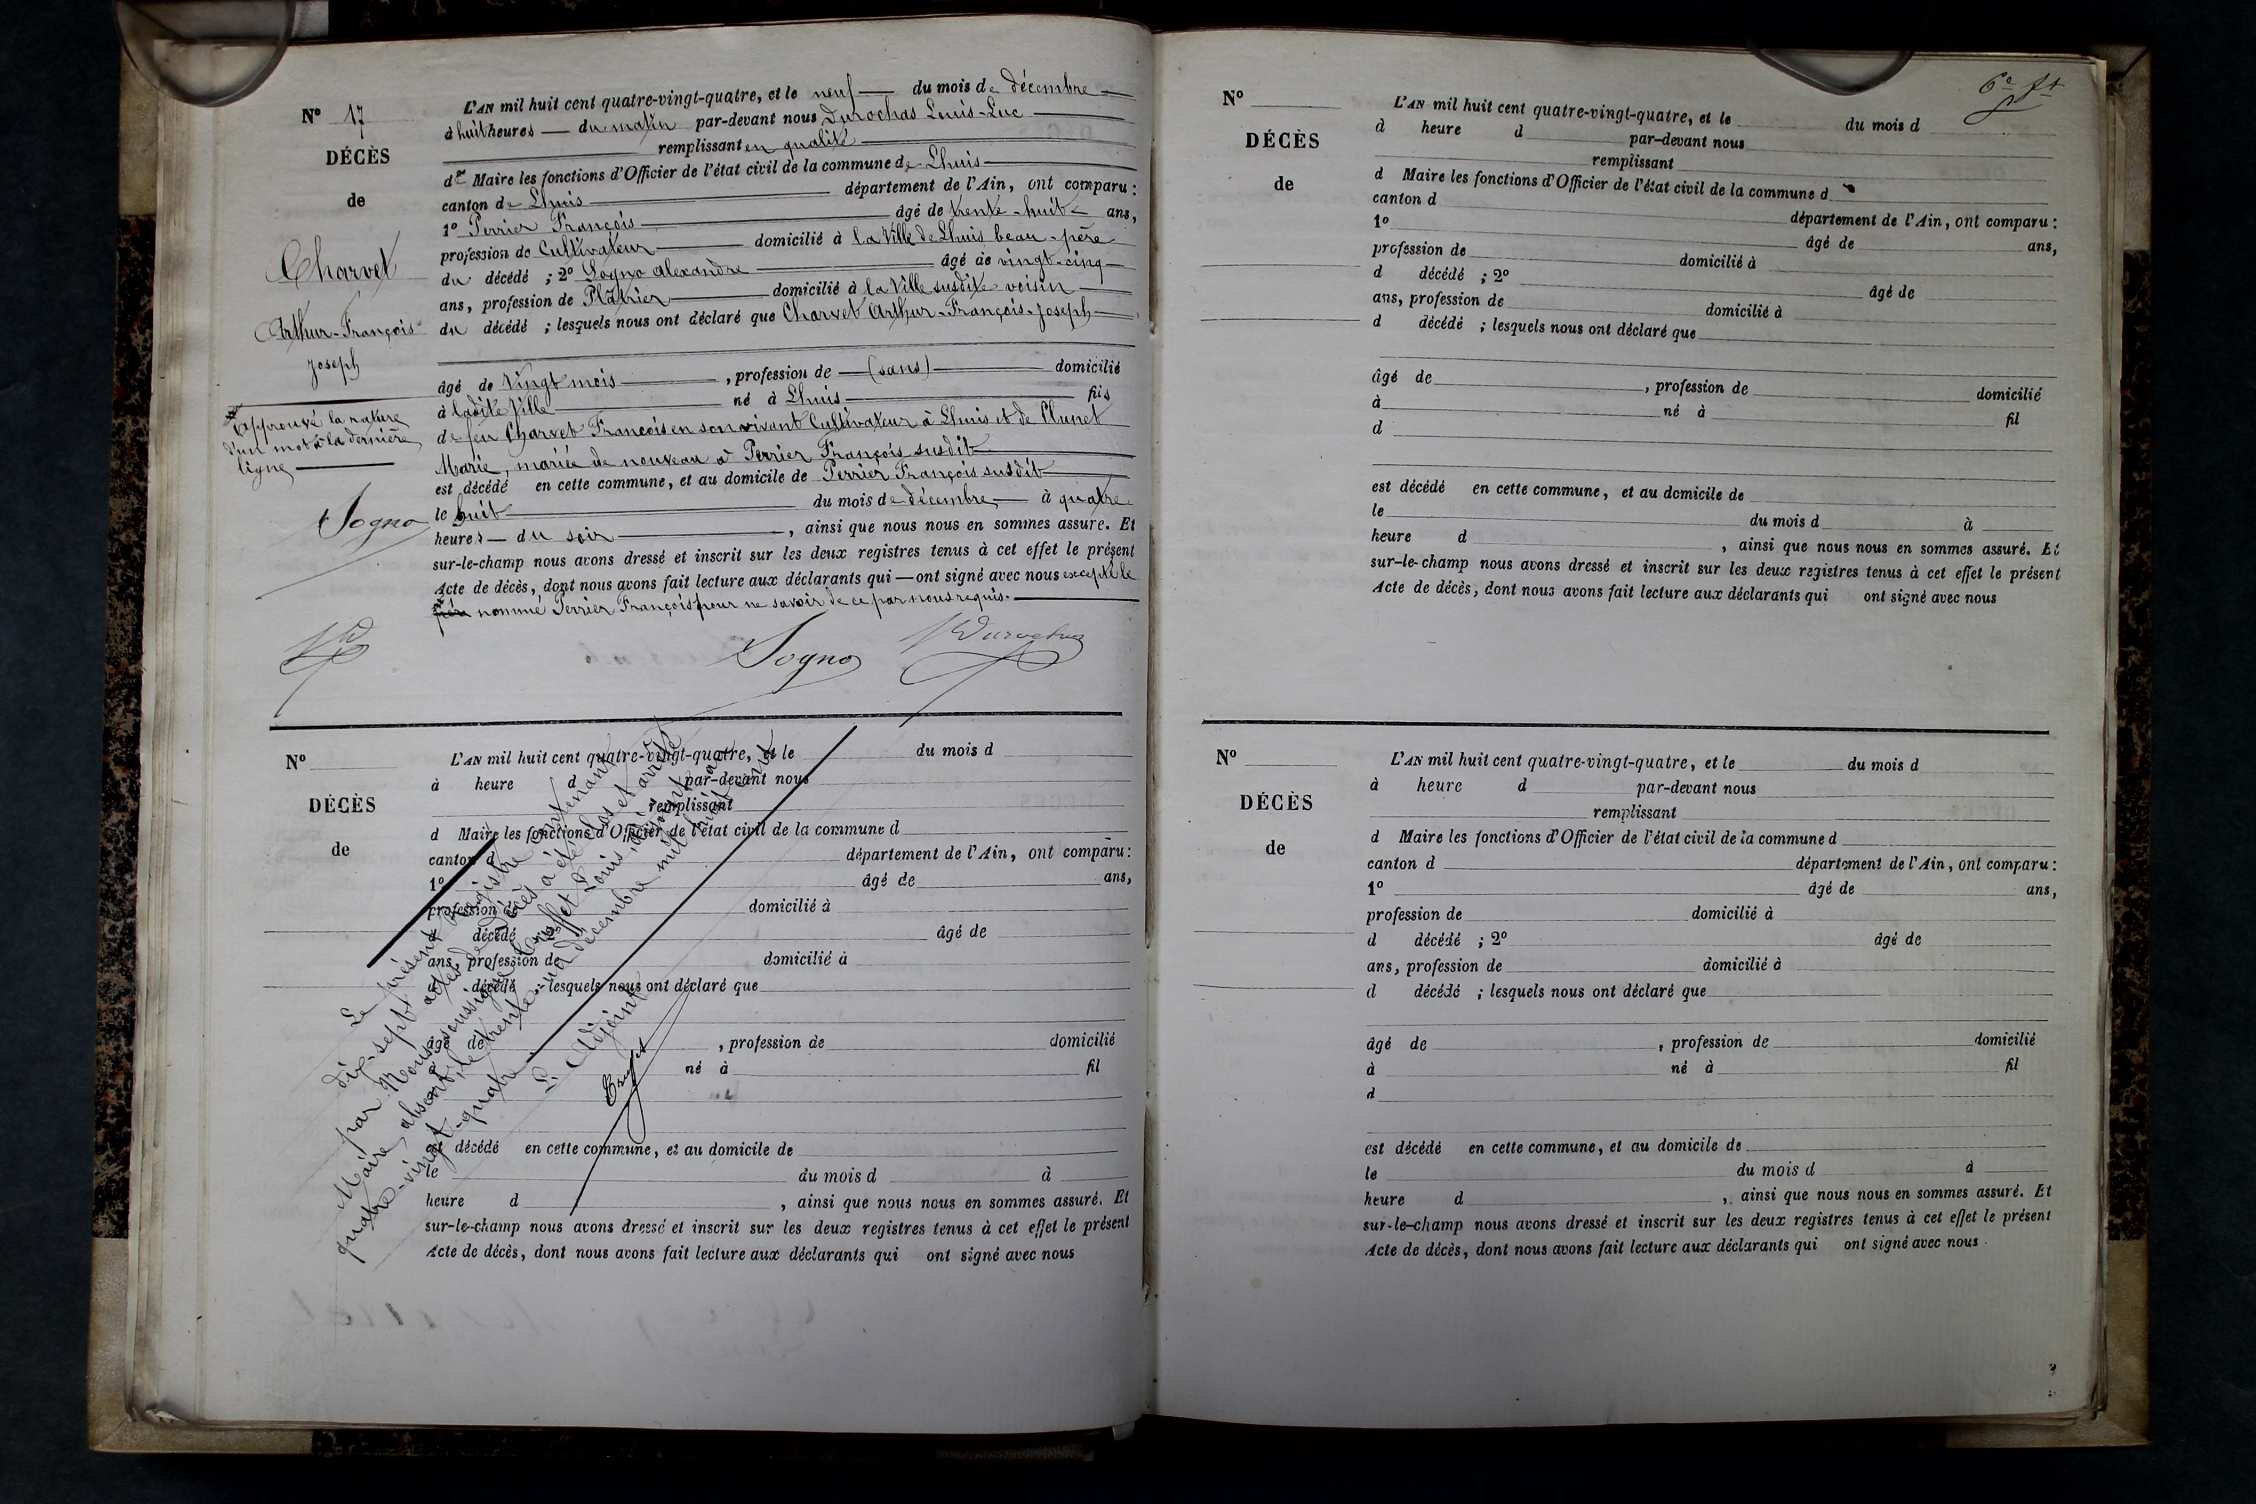 Nº 17
DÉCÈS
de
Charvet
Arthur-François
Joseph
Approuvé la rature
d'un mot à la dernière
ligne
Sogno
L'AN mil huit cent quatre-vingt-quatre, et le neuf du mois de décembre
à huit heures du matin par-devant nous Durochas Louis-Luc
remplissant en qualité
de Maire les fonctions d'Officier de l'état civil de la commune de Lhuis
canton de Lhuis département de l'Ain, ont comparu :
1º Perrier François âgé de trente-huit ans,
profession de Cultivateur domicilié à la Ville de Lhuis beau-père
du décédé ; 2º Sogno Alexandre âgé de vingt-cinq
ans, profession de Plâtrier domicilié à la Ville susdite voisin
du décédé ; lesquels nous ont déclaré que Charvet Arthur-François-Joseph
âgé de Vingt mois , profession de (sans) domicilié
à ladite Ville né à Lhuis fils
de feu Charvet François en son vivant Cultivateur à Lhuis et de Clunet
Marie, mariée de nouveau à Perrier François susdit
est décédé en cette commune, et au domicile de Perrier François susdit
le huit du mois de décembre à quatre
heures du soir , ainsi que nous nous en sommes assuré. Et
sur-le-champ nous avons dressé et inscrit sur les deux registres tenus à cet effet le présent
Acte de décès, dont nous avons fait lecture aux déclarants qui ont signé avec nous excepté le
nommé Perrier François pour ne savoir de ce par nous requis.
Sogno Durochas
Nº
DÉCÈS
de
L'AN mil huit cent quatre-vingt-quatre, et le du mois d
à heure d par-devant nous
remplissant
d Maire les fonctions d'Officier de l'état civil de la commune d
canton d département de l'Ain, ont comparu :
1º âgé de ans,
profession de domicilié à
d décédé ; 2º âgé de
ans, profession de domicilié à
d décédé ; lesquels nous ont déclaré que
âgé de , profession de domicilié
à né à fil
d
est décédé en cette commune, et au domicile de
le du mois d à
heure d , ainsi que nous nous en sommes assuré. Et
sur-le-champ nous avons dressé et inscrit sur les deux registres tenus à cet effet le présent
Acte de décès, dont nous avons fait lecture aux déclarants qui ont signé avec nous
Le présent Registre contenant
dix-sept actes de Décès a été clos et arrêté
par Nous soussigné Louis, adjoint au
Maire, absent, le trente-un décembre mil huit cent
quatre-vingt-quatre
L'Adjoint
6e ft
Nº
DÉCÈS
de
L'AN mil huit cent quatre-vingt-quatre, et le du mois d
à heure d par-devant nous
remplissant
d Maire les fonctions d'Officier de l'état civil de la commune d
canton d département de l'Ain, ont comparu :
1º âgé de ans,
profession de domicilié à
d décédé ; 2º âgé de
ans, profession de domicilié à
d décédé ; lesquels nous ont déclaré que
âgé de , profession de domicilié
à né à fil
d
est décédé en cette commune, et au domicile de
le du mois d à
heure d , ainsi que nous nous en sommes assuré. Et
sur-le-champ nous avons dressé et inscrit sur les deux registres tenus à cet effet le présent
Acte de décès, dont nous avons fait lecture aux déclarants qui ont signé avec nous
Nº
DÉCÈS
de
L'AN mil huit cent quatre-vingt-quatre, et le du mois d
à heure d par-devant nous
remplissant
d Maire les fonctions d'Officier de l'état civil de la commune d
canton d département de l'Ain, ont comparu :
1º âgé de ans,
profession de domicilié à
d décédé ; 2º âgé de
ans, profession de domicilié à
d décédé ; lesquels nous ont déclaré que
âgé de , profession de domicilié
à né à fil
d
est décédé en cette commune, et au domicile de
le du mois d à
heure d , ainsi que nous nous en sommes assuré. Et
sur-le-champ nous avons dressé et inscrit sur les deux registres tenus à cet effet le présent
Acte de décès, dont nous avons fait lecture aux déclarants qui ont signé avec nous